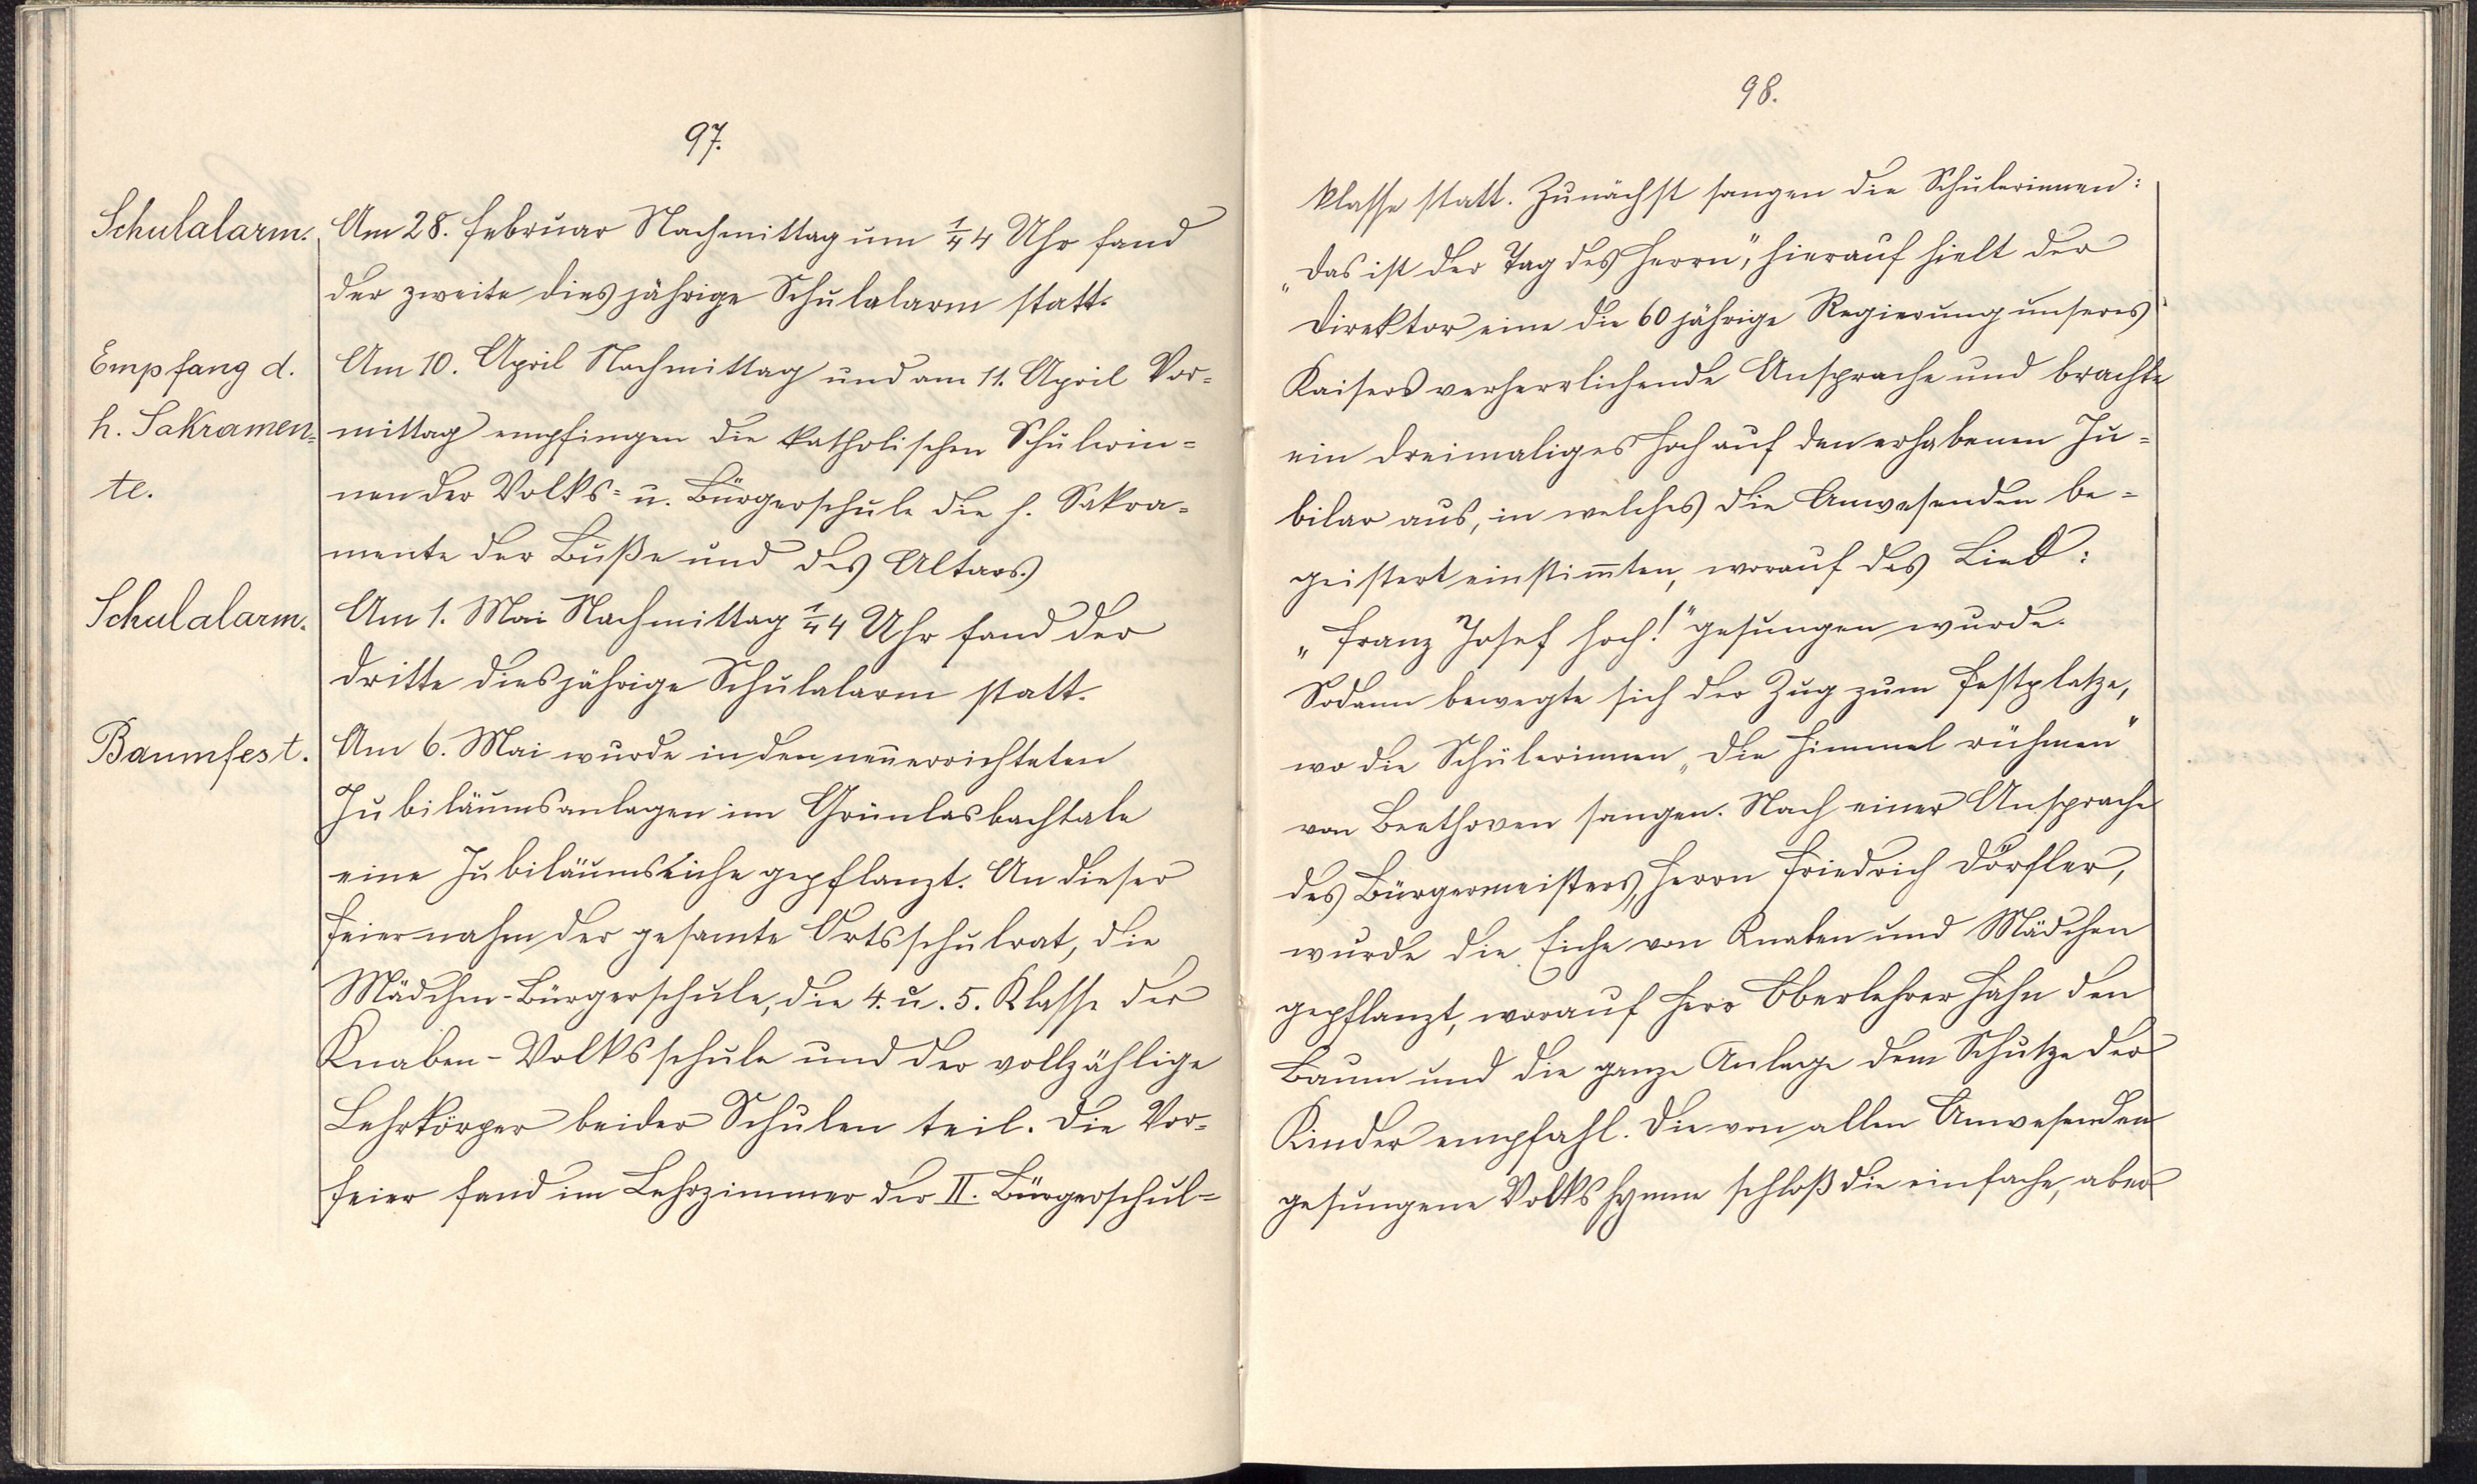 97.
Schulalarm.
Am 28. Februar Nachmittag um 1/4 4 Uhr fand
der zweite diesjährige Schulalarm statt.
Empfang d.
h. Sakramen=
te.
Am 10. April Nachmittag und am 11. April Vor=
mittag empfingen die katholischen Schülerin=
nen der Volks= u. Bürgerschule die h. Sakra=
mente der Buße und des Altars.
Schulalarm.
Am 1. Mai Nachmittag 1/4 4 Uhr fand der
dritte diesjährige Schulalarm statt.
Baumfest.
Am 6. Mai wurde in den neuerrichteten
Jubiläumsanlagen im Grünlasbachtale
eine Jubiläumseiche gepflanzt. An dieser
Feier nahm der gesamte Ortsschulrat, die
Mädchen-Bürgerschule, die 4. u. 5. Klasse der
Knaben-Volksschule und der vollzählige
Lehrkörper beider Schulen teil. Die Vor-
feier fand im Lehrzimmer der II. Bürgerschul=
98.
klasse statt. Zunächst sangen die Schülerinnen:
„Das ist der Tag des Herrn“, hierauf hielt der
Direktor eine die 60 jährige Regierung unseres
Kaisers verherrlichende Ansprache und brachte
ein dreimaliges Hoch auf den erhabenen Ju=
bilar aus, in welches die Anwesenden be=
geistert einstim̅ten, worauf das Lied:
„Franz Josef hoch!“ gesungen wurde.
Sodann bewegte sich der Zug zum Festplatze,
wo die Schülerinnen „Die Himmel rühmen“
von Beethoven sangen. Nach einer Ansprache
des Bürgermeisters, Herrn Friedrich Dörfler,
wurde die Eiche von Knaben und Mädchen
gepflanzt, worauf Herr Oberlehrer Hahn den
Baum und die ganze Anlage dem Schutze der
Kinder empfahl. Die von allen Anwesenden
gesungene Volkshymne schloß die einfache, aber